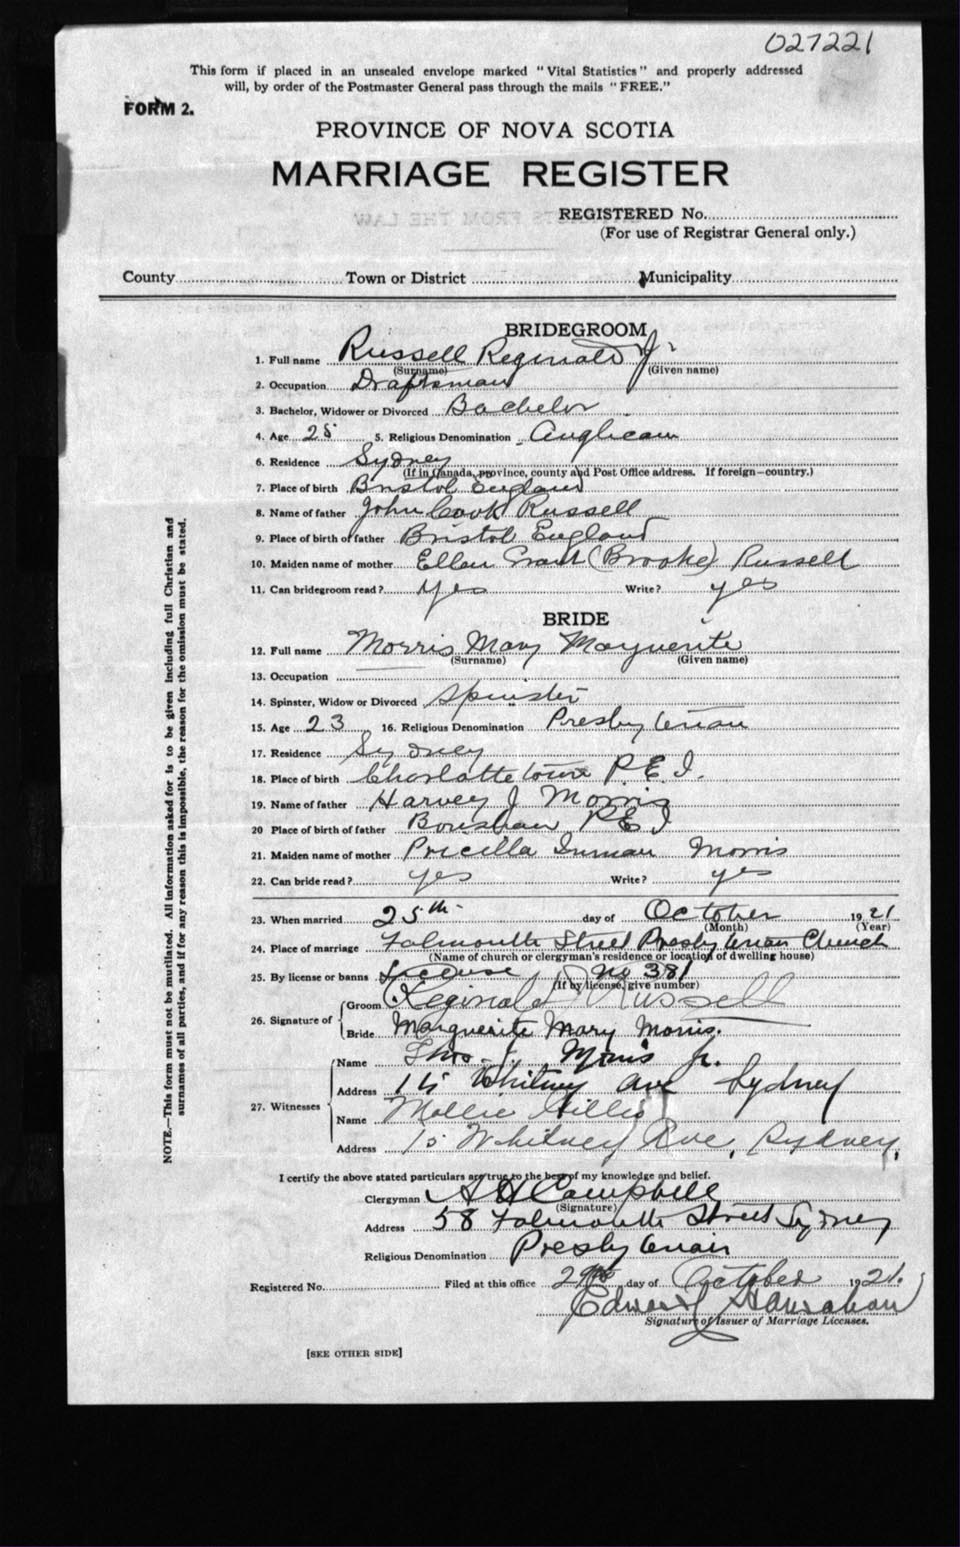 027221
This form if placed in an unsealed envelope marked "Vital Statistics" and properly addressed
will, by order of the Postmaster General pass through the mails "FREE."
FORM 2.
PROVINCE OF NOVA SCOTIA
MARRIAGE REGISTER
REGISTERED No.
(For use of Registrar General only.)
County Town or District Municipality
BRIDEGROOM
1. Full name Russell Reginald
(Surname) (Given name)
2. Occupation Draftsman
3. Bachelor, Widower or Divorced Bachelor
4. Age 25 5. Religious Denomination Anglican
6. Residence Sydney
(If in Canada, province, county and Post Office address. If foreign—country.)
7. Place of birth Bristol England
8. Name of father John Cook Russell
9. Place of birth of father Bristol England
10. Maiden name of mother Ellen Grant (Brooke) Russell
11. Can bridegroom read? Yes Write? yes
BRIDE
12. Full name Morris Mary Marguerite
(Surname) (Given name)
13. Occupation
14. Spinster, Widow or Divorced Spinster
15. Age 23 16. Religious Denomination Presbyterian
17. Residence Sydney
18. Place of birth Charlottetown P.E.I.
19. Name of father Harvey J Morris
20 Place of birth of father Bonshaw P.E.I
21. Maiden name of mother Pricilla Inman Morris
22. Can bride read? yes Write? yes
23. When married 25th day of October 1921
(Month) (Year)
24. Place of marriage Falmouth Street Presbyterian Church
(Name of church or clergyman's residence or location of dwelling house)
25. By license or banns License No 381
(If by license, give number)
26. Signature of Groom Reginald Russell
Bride Marguerite Mary Morris.
27. Witnesses Name Thos. Morris Jr.
Address 15 Whitney Ave Sydney
Name Mollie Gillis
Address 15 Whitney Ave, Sydney,
I certify the above stated particulars are true to the best of my knowledge and belief.
Clergyman A H Campbell
(Signature)
Address 58 Falmouth Street Sydney
Religious Denomination Presbyterian
Registered No. Filed at this office 29th day of October 1921.
Edward Hanrahan
Signature of Issuer of Marriage Licenses.
[SEE OTHER SIDE]
NOTE.—This form must not be mutilated. All information asked for is to be given including full Christian and
surnames of all parties, and if for any reason this is impossible, the reason for the omission must be stated.